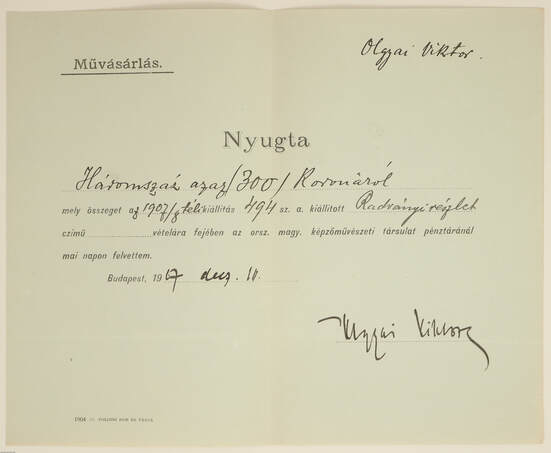 Olgyai Viktor.
Művásárlás.
Nyugta
Háromszáz azaz /300/ Koronáról
mely összeget az 1907/8 téli kiállítás 494 sz. a. kiállított Radványi részlet
czímű vételára fejében az orsz. magy. képzőművészeti társulat pénztáránál
mai napon felvettem.
Budapest, 1907 decz. 10.
Olgyai Viktor
1904